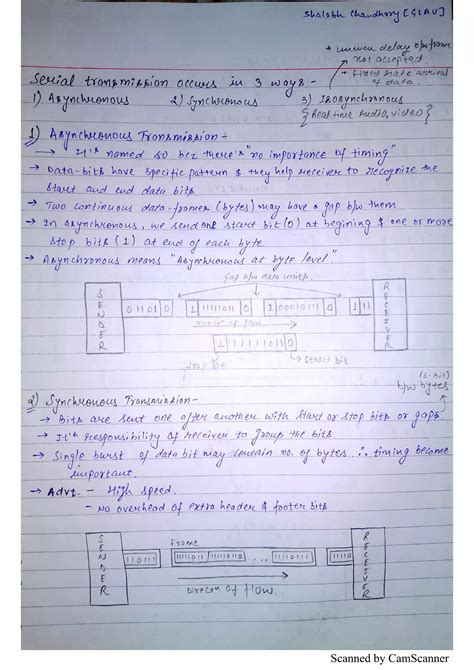 Shalabh Chaudhary [GLAU]
+ uneven delay b/w frame
not accepted
+ fixed rate arrival
of data.
Serial transmission occurs in 3 ways -
1) Asynchronous 2) Synchronous 3) Isosynchronous
{Realtime Audio, video}
1) Asynchronous Transmission -
→ It's named so bcz there's "no importance of timing"
→ Data-bits have specific pattern & they help receiver to recognize the
start and end data bits.
→ Two continuous data-frames (bytes) may have a gap b/w them
→ In asynchronous, we send one start bit (0) at begining & one or more
stop bits (1) at end of each byte.
→ Asynchronous means "Asynchronous at byte level"
Gap b/w data units
SENDER
01101 0
1 11111011 0
1 00010111 0
1 11
RECEIVER
direcn of flow
1 11111011 0
Stop bit
Start bit
(8-bit)
b/w bytes
2) Synchronous Transmission -
→ Bits are sent one after another with start or stop bits or gaps
→ It's responsibility of receiver to group the bits
→ Single burst of data bit may contain no. of bytes ∴ timing become
important.
→ Advt. - High speed.
- No overhead of extra header & footer bits
SENDER
Frame
110111
11111011
....
RECEIVER
Direcn of flow.
Scanned by CamScanner